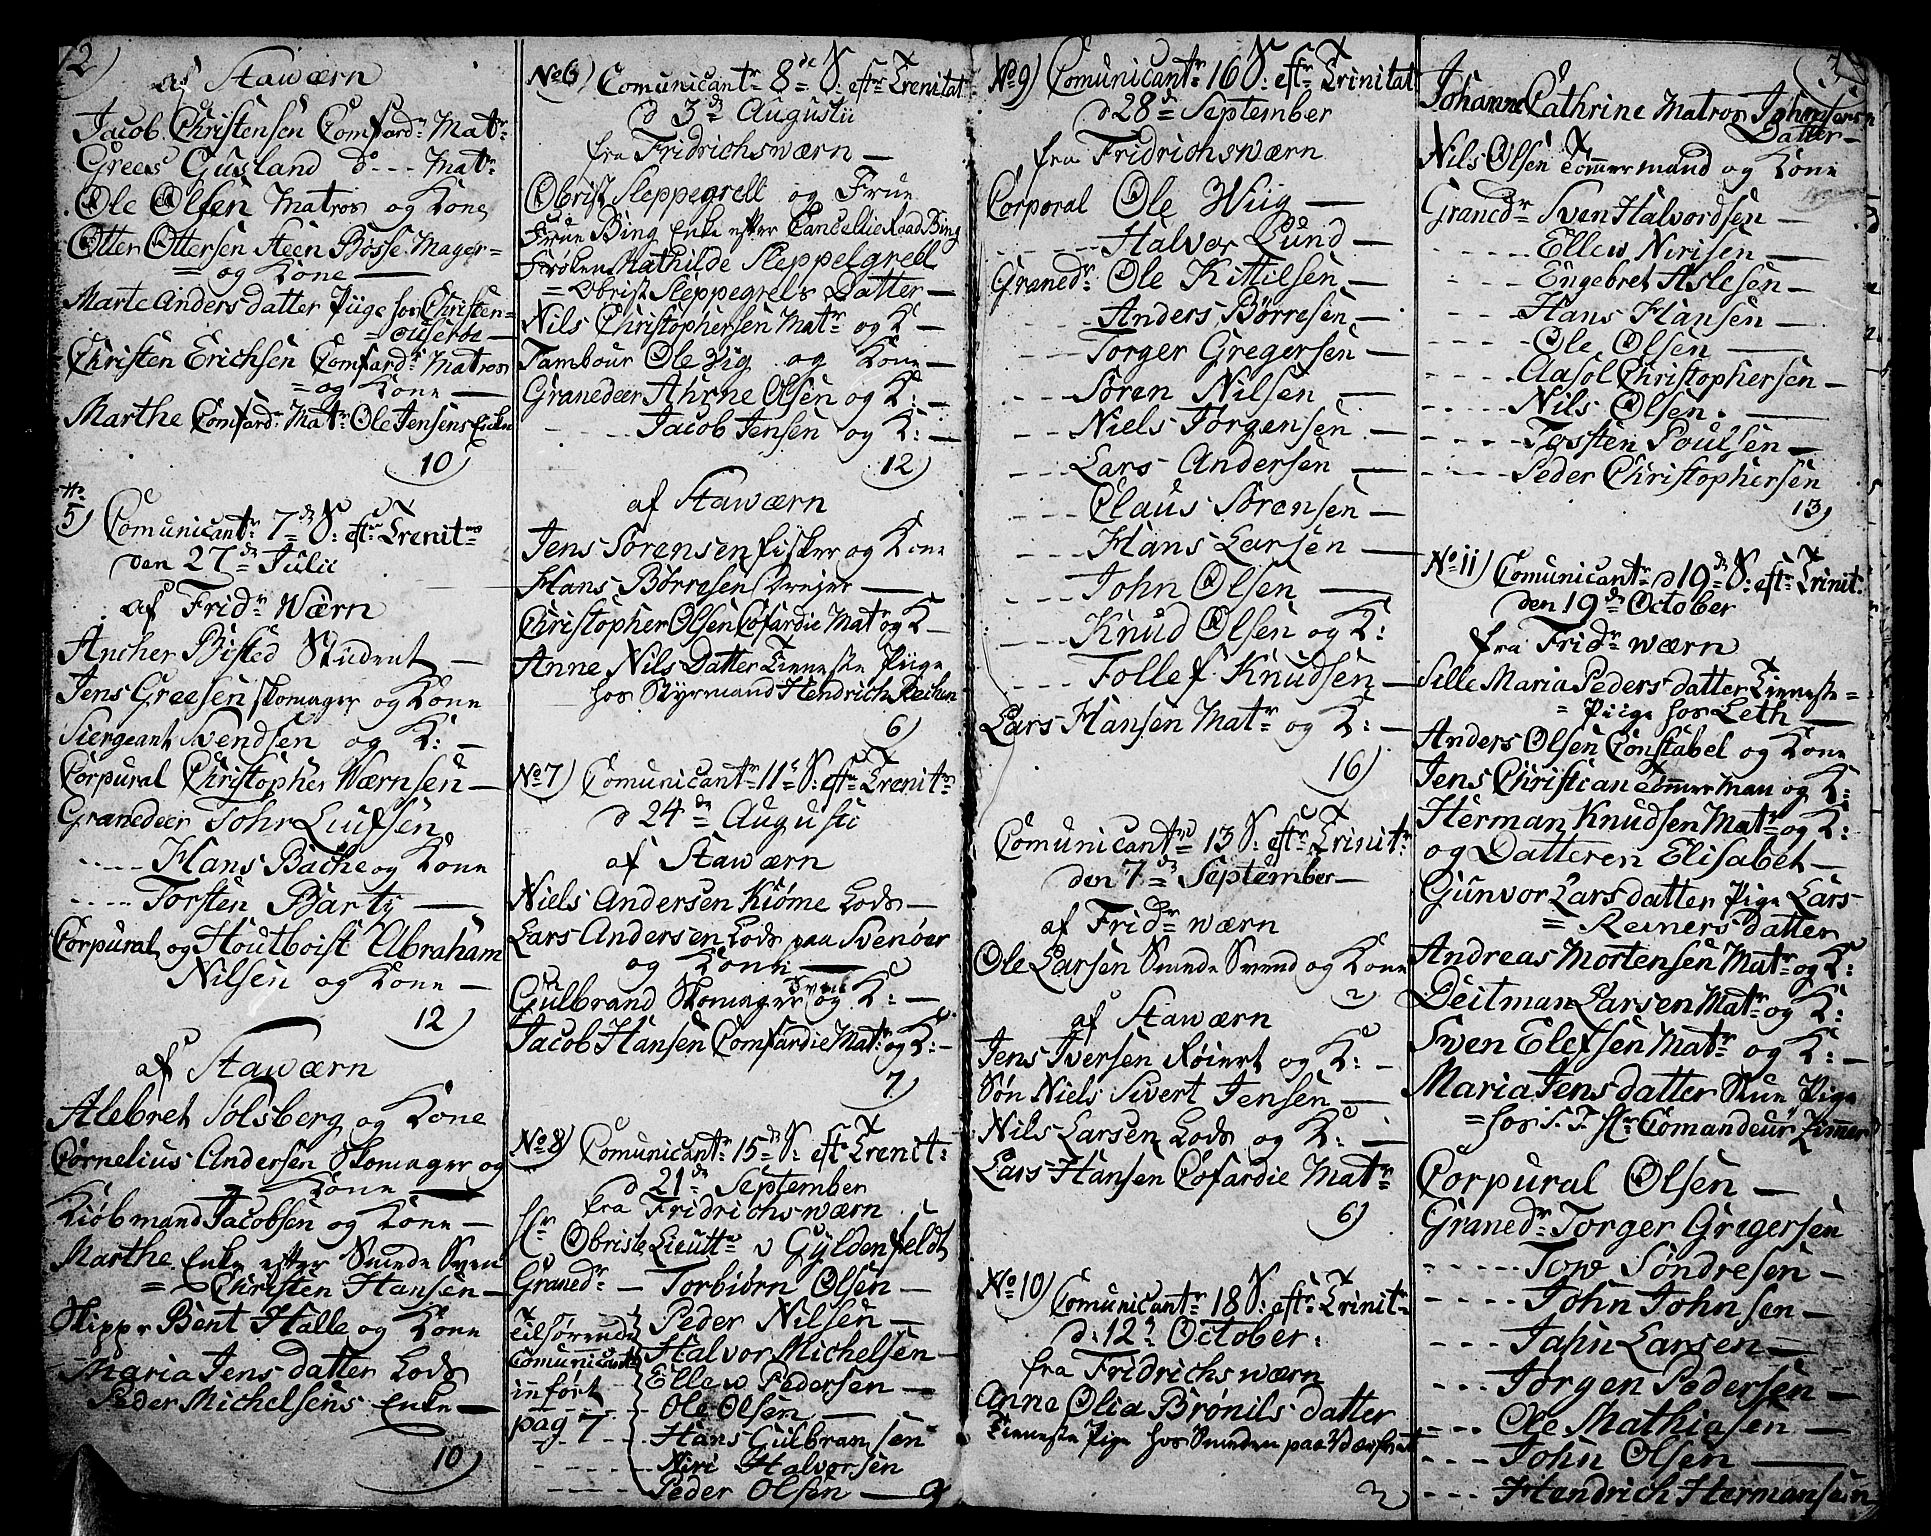 2)
af Stawærn
Jacob Christensen Comfard: Mat:
Grees Gusland do --- Mat:
Ole Olsen Matros og Kone
Otter Ottersen Steen Bosse Mager=
= og Kone —
Marte Anders datter Piige hos Christen=
Christen Erichsen Comfard: Matros
= og Kone —
Marthe Comfard: Mat: Ole Jensens Enke
10)
No 5) Comunicantr 7de S: eftr Trenits
den 27de Julii
af Fridr Wærn
Ancher Bisted Student —
Jens Greesen Skomager og Kone
Siergeant Svendsen og K: —
Corpural Christopher Wærnsen —
Granedeer John Luifsen
---- Hans Bache og Kone
---- Torsten Barty —
Corpural og Houtboist Abraham
Nilsen og Kone —
12)
af Stawærn
Alebret Solsberg og Kone
Cornelius Andersen Skomager og
Kone —
Kiöbmand Jacobsen og Kone —
Marthe Enke efter Smede Sven
= Christen Hansen —
Skippr Bent Halle og Kone
Maria Jens datter Lods
Peder Michelsens Enke —
10)
No 6) Comunicantr 8de S: eftr Trenitat
d 3de Augustii
fra Fridrichswærn —
Obrist Sleppegrell og Frue
Frue Bing Enke efter Cancellie Raad Bing
Frøken Mathilde Sleppelgrell
= Obrist Sleppegrels Datter —
Nils Christophersen Matr og K —
Tambour Ole Vig og Kone —
Granedeer Ahrne Olsen og K: —
---- Jacob Jensen og K: —
12)
af Stawærn
Jens Sørensen fisker og Kone
Hans Børresen Dreyer —
Christopher Olsen Cofardie Matr og K —
Anne Nils Datter Tieneste Piige
hos Styrmand Hendrich Stechen
6)
No 7) Comunicantr 11te S: eftr Trenitr
d 24de Augusti
af Stawærn
Niels Andersen Kiöme Lods —
Lars Andersen Lods paa Svenöer
og Kone —
Gulbrand Skomager Svend og K: —
Jacob Hansen Comfardie Matr og K: —
7)
No 8) Comunicantr 15de S: eft Trenit:
d 21de September
fra Fridrichswærn
Hr Obriste Lieuttn v Gyldenfeldt
Granedr — Torbiörn Olsen —
Tilhørende Peder Nilsen —
Comunicanter Halvor Michelsen —
infört Ellev Pedersen —
---- Ole Olsen —
pag 7 --- Hans Gulbransen
---- Niri Halvorsen
---- Peder Olsen — 9
No 9) Comunicantr 16 S: eftr Trinitat
d 28de September
fra Fridrichswærn
Corporal Ole Wiig —
---- Halvor Lund —
Granedr Ole Kittilsen —
---- Anders Börresen —
---- Torger Gregersen —
---- Sören Nilsen —
---- Niels Jörgensen —
---- Lars Andersen —
---- Claus Sörensen —
---- Hans Larsen —
---- John Olsen —
---- Knud Olsen og K:
---- Tollef Knudsen —
Lars Hansen Matr og K: —
16)
Comunicantr 13 S: eftr Trinitr
den 7de September —
af Fridr wærn
Ole Larsen Smede Svend og Kone
2)
af Stawærn
Jens Iversen Röiert og K: —
Søn Niels Sivert Jensen —
Nils Larsen Lods og K: —
Lars Hansen Cofardie Matr
6)
No 10) Comunicantr 18 S: eftr Trinitr
d: 12te October:
fra Fridrichswærn
Anne Olia Brönils datter
Tieneste Pige hos Smeden paa Værftet
2
Johanne Cathrine Matros Johnsens
Datter —
Nils Olsen Tömmermand og Kone
Granedr Sven Halvordsen —
---- Ellew Nirisen —
---- Engebret Aslesen —
---- Hans Hansen —
---- Ole Olsen —
---- Aasol Christophersen —
---- Nils Olsen. —
---- Tosten Poulsen —
---- Peder Christophersen
13)
No 11) Comunicantr d 19de S: eftr Trinit:
den 19de October
fra Fridr wærn
Sille Maria Peders datter Tieneste=
= Piige hos Leth —
Anders Olsen Constabel og Kone
Jens Christian Tömmerman og K:
Herman Knudsen Matr og K:
og Datteren Elisabet —
Gunvor Lars datter Pige Lars
= Reiners datter
Andreas Mortensen Matr og K:
Deitman Larsen Matr og K:
Swen Elefsen Matr og K: —
Maria Jens datter Stue Pige
= hos S. T. Hr Comandeur Zimmer
Corpural Olsen —
Granedr Torger Gregersen
---- Tow Söndresen —
---- John Johnsen —
---- Jahn Larsen —
---- Jörgen Pedersen —
---- Ole Mathiasen —
---- John Olsen —
---- Hendrich Hermansen